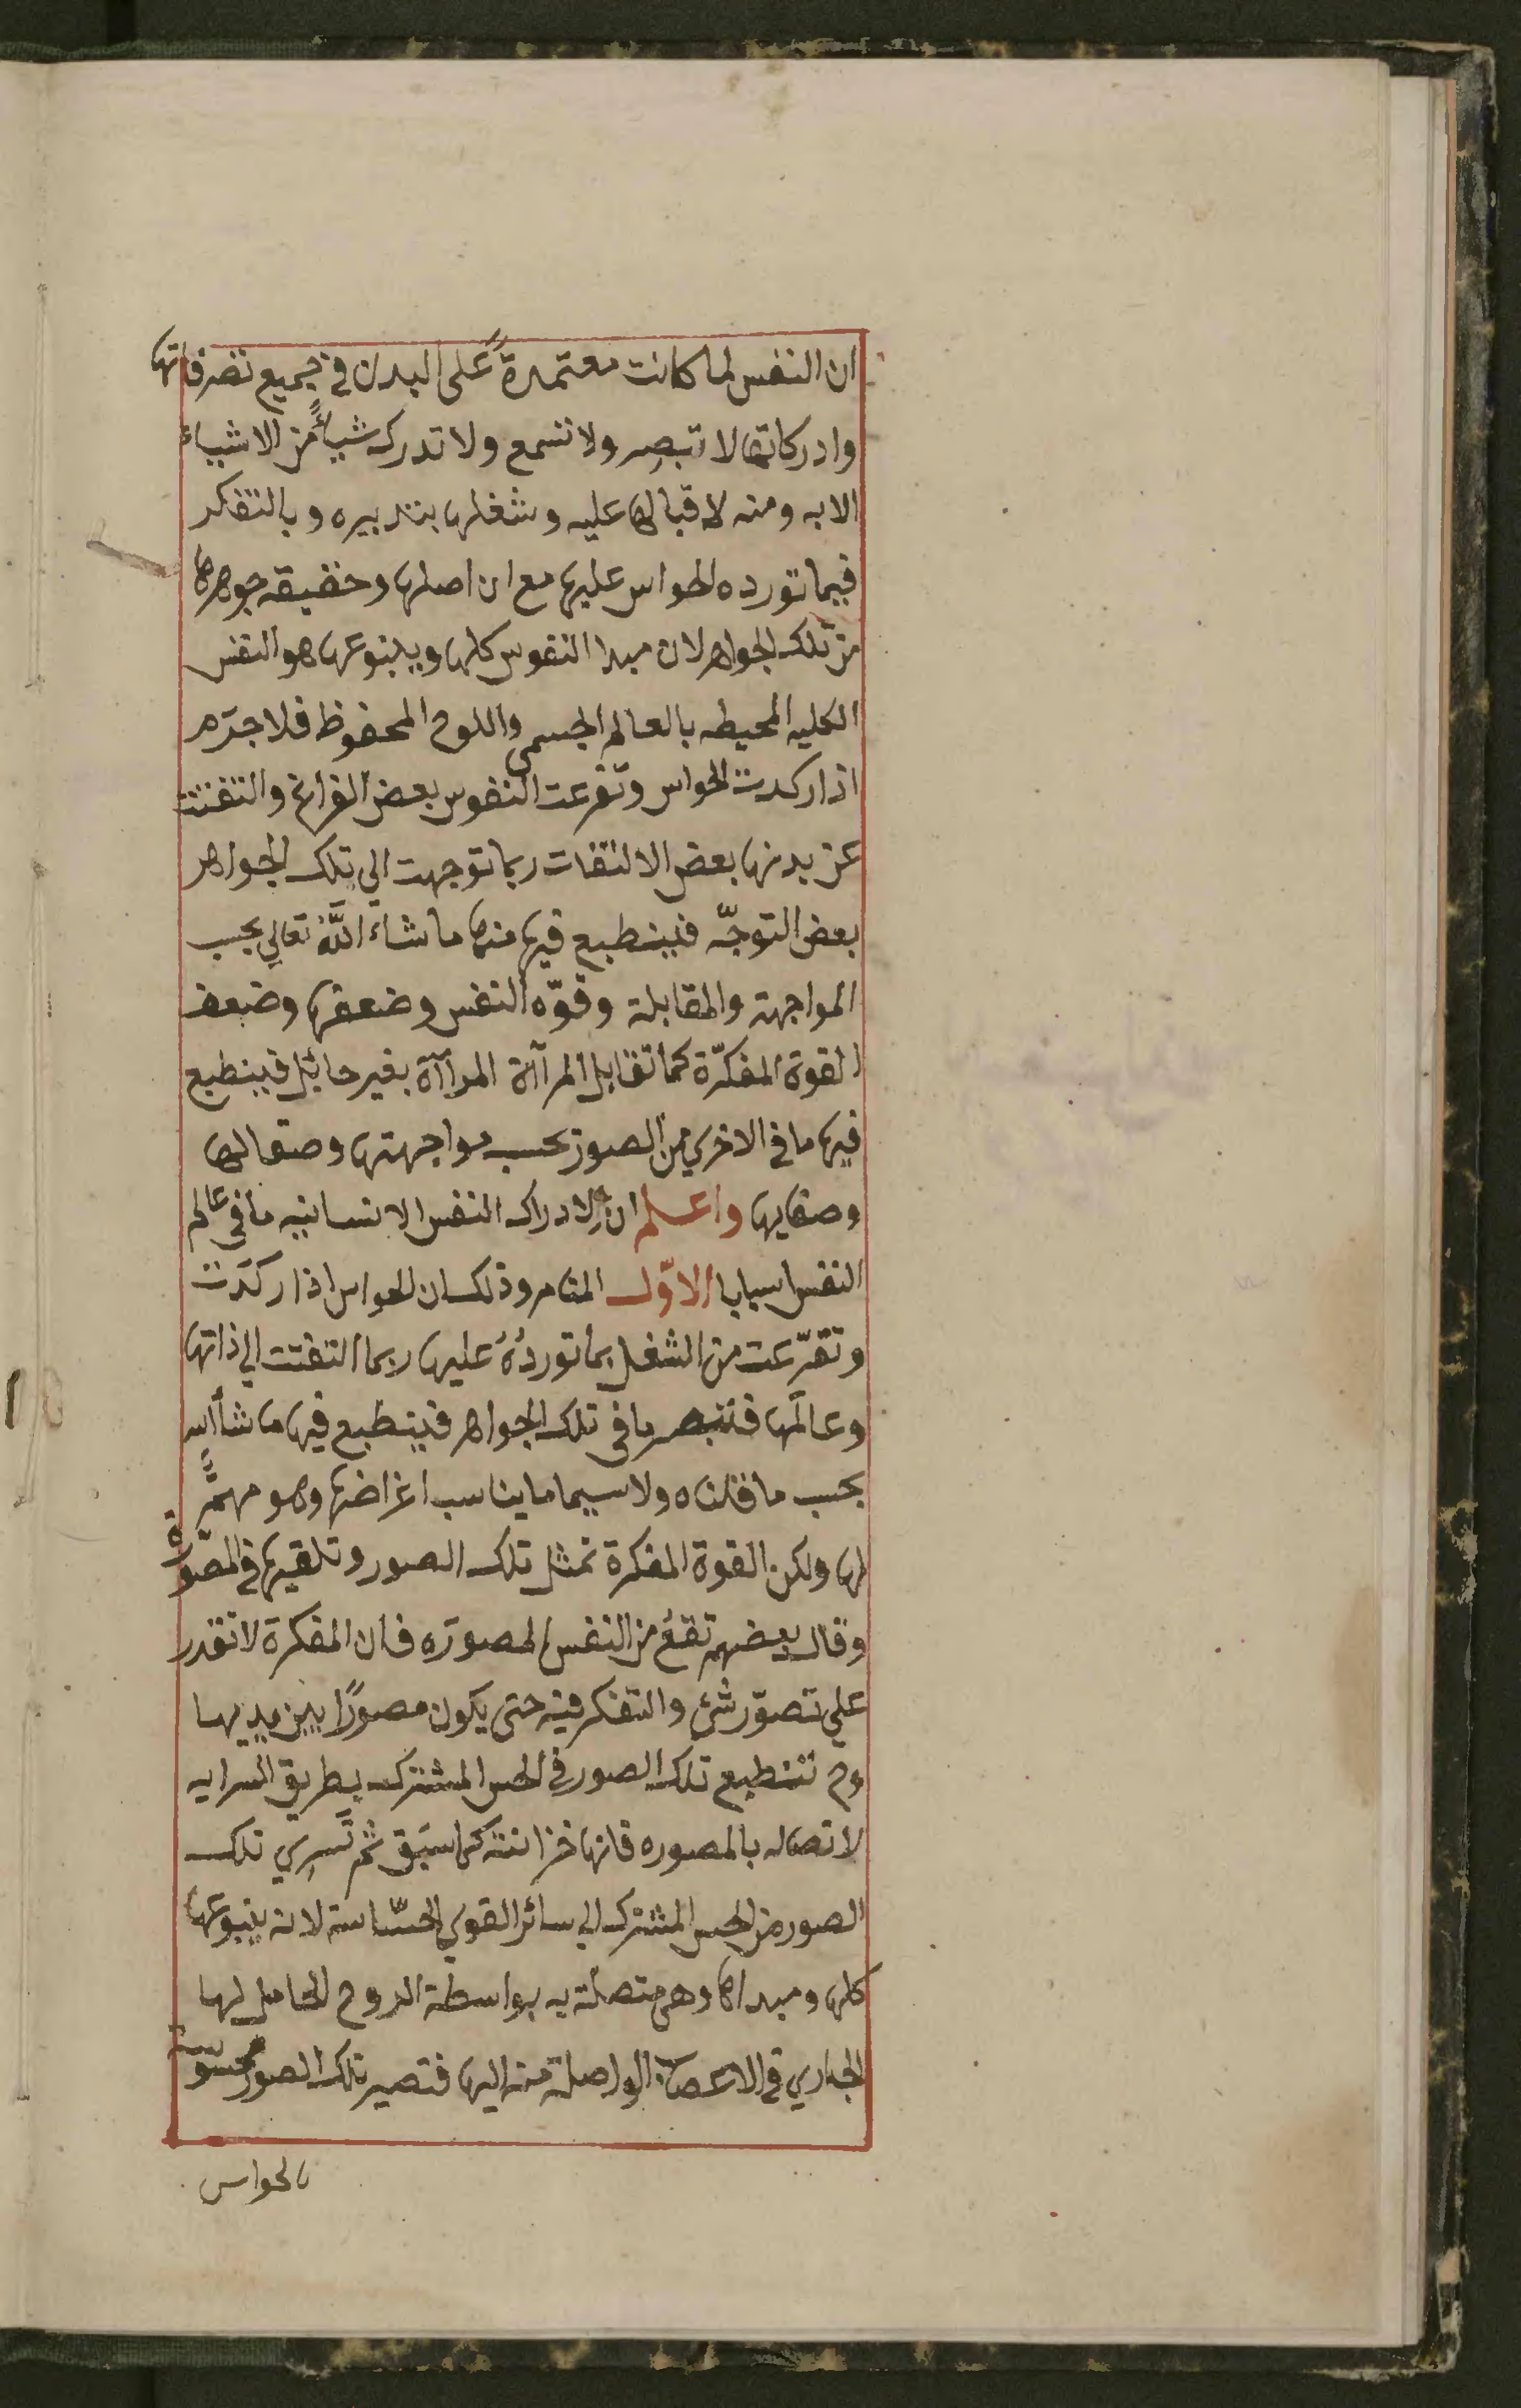 ان النفس لما كانت معتمدةً على البدن في جميع تصرفاتها
وادركاتها لا تبصر ولا تسمع ولا تدرك شياًء من الاشياء
الا به ومنه لاقبالها عليه وشغلها بتدبيره وبالتفكر
فيما تورده الحواس عليها مع ان اصلها وحقيقه جوهرها
من تلك الجواهر لان مبدا النفوس كلها وينبوعها هو النفس
الكليه المحيطه بالعالم الجسمي واللوح المحفوظ فلا جرَم
اذا ركدت الحواس وتفرعت النفوس بعض الفراغ والتفتت
عن بدنها بعض الالتفات ربما توجهت الي تلك الجواهر
بعض التوجّه فينطبع فيها منها ما شاء اللّه تعالي بحسب
المواجهة والمقابلة وقوّه النفس وضعفها وضعف
القوة المفكرّة كما تقابل المرآة المرآة بغير حائل فينطبع
فيها ما في الاخري من الصور بحسب مواجهتها وصقالها
وصفايها واعلم ان لادراك النفس الانسانيه ما في عالم
النفس اسبابا الاوّل المنام وذلك ان الحواس اذا ركدَت
وتفرّعت من الشغل بما توردُهُ عليها ربما التفتت الي ذاتها
وعالمها فتبصر ما في تلك الجواهر فينطبع فيها ما شا الله
بحسب ما قلناه ولا سيما ما يناسب اغراضها وهو مهمٌّ
لها ولكن القوة المفكرة تمثل تلك الصور وتلقيها في المصّورة
وقال بعضهم تقعُ من النفس المصورَه فان المفكرة لا تقدر
علي تصوّر شئ والتفكر فيه حتى يكون مصورًا بين يديها
وح تنطبع تلك الصور في الحس المشترك بطريق السرايه
لاتصاله بالمصوره فانها خزانته كما سبَق ثم تَسرِي تلك
الصور من الحس المشترك الي سائر القوي الحسّاسة لانه ينبوعها
كلها ومبداها وهي متصلة به بواسطة الروح الحامل لها
الجاري في الاعصاب الواصلة منه اليها فتصير تلك الصور محسوسة
بالحواس